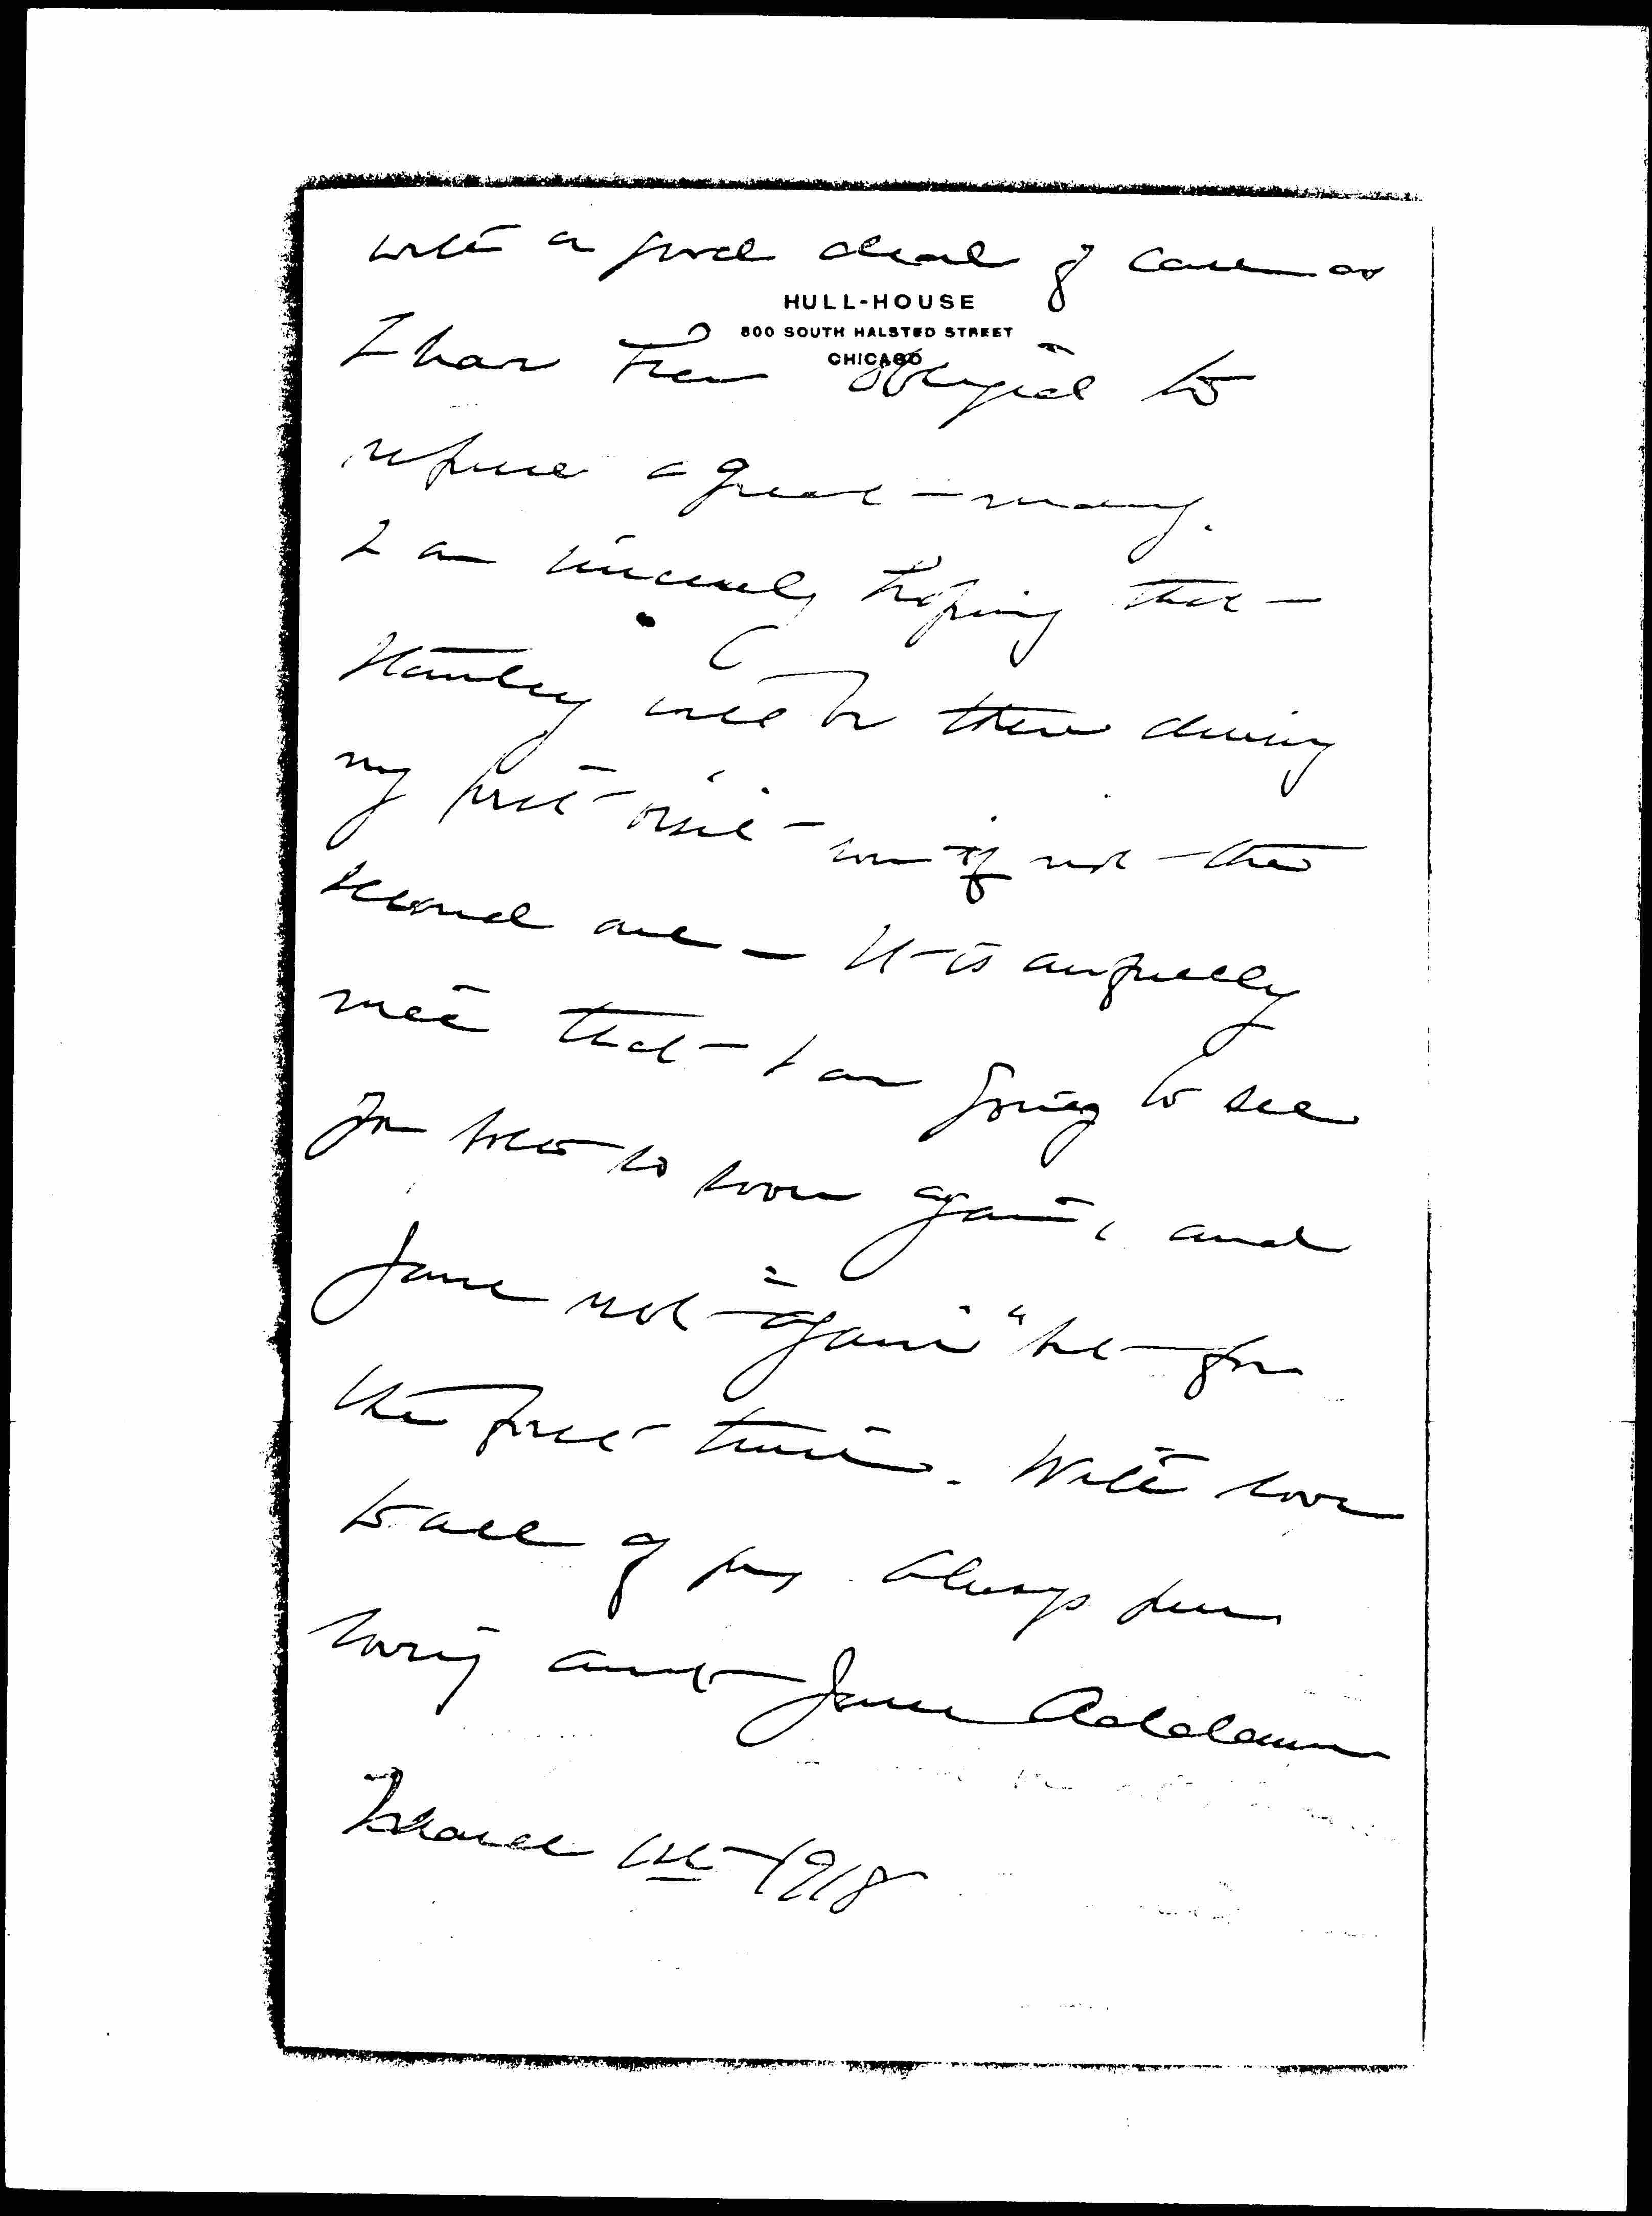 with a good deal of care as
HULL-HOUSE
800 SOUTH HALSTED STREET
CHICAGO
I have been obliged to
refuse a great many.
I am sincerely hoping that
Stanley will be there during
my first visit even if not the
second one – It is awfully
nice that I am going to see
you both so soon again, and
Jane not "again" but for
the first time. With love
to all of you. Always your
loving aunt Jane Addams
March 1st 1918